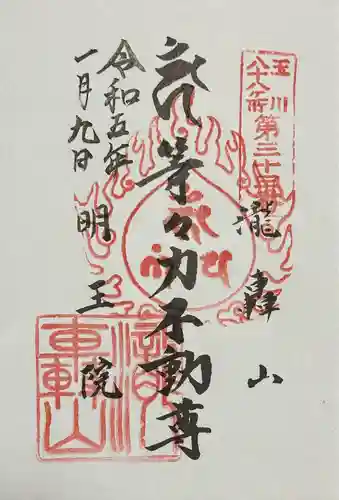 玉川
八十八ヶ所第三十番
瀧轟山
等々力不動尊
明王院
令和五年
一月九日